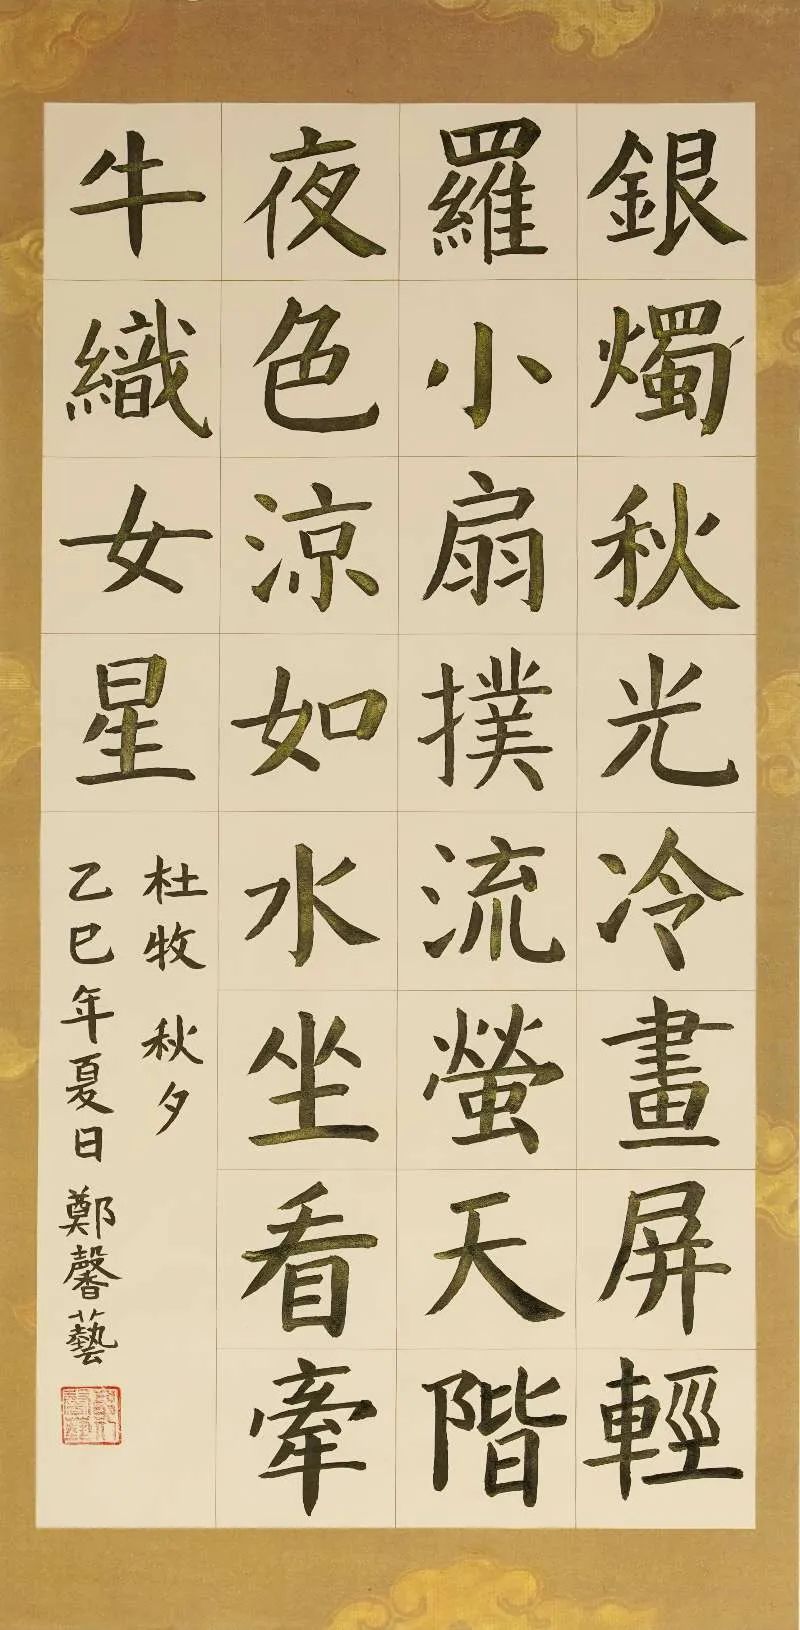 銀燭秋光冷畫屏輕
羅小扇撲流螢天階
夜色涼如水坐看牽
牛織女星
杜牧 秋夕
乙巳年夏日 鄭馨藝